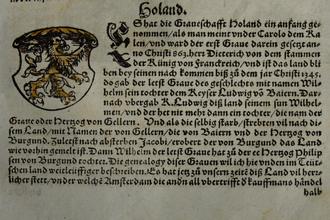 Holand.
S hat die Graueschafft Holand ein anfang ge-
nommen/ als man meint vnder Carolo dem Ka-
len/ vnd ward der erst Graue darein gesetzt an-
no Christi 863. herr Dieterich von dem stammen
der Künig von Franckrych/ vnd ist das land bli
ben bey seinen nach kommen biß zů dem jar Christi 1245.
do gab der letst Graue des geschlechts mit namen Wil-
helm sein tochter dem Keyser Ludwig vō Baiern. Dar-
nach vbergab K. Ludwig diß land seinem sun Wilhel-
men/ vnd der het nit mehr dann ein tochter/ die nam der
Graue oder Hertzog von Gellern. Vnd als die selbig starb/ erstriten vil nach di-
sem Land/ mit Namen der von Gellern/ die von Baiern vnd der Hertzog von
Burgund. Zůletst nach absterben Jacobi/ erobert der von Burgund das Land
wie vorhin gemelt ist. Dann Wilhelm der letst Graue hat zů der ee Hertzog Philip
sen von Burgund tochter. Die genealogy diser Grauen wil ich hie vnden im Teüt-
schen land weitleüffiger beschreiben. Es hat jetz zů vnsern zeitē diß Land vil herr-
licher stett/ vnd welchē Amsterdam die and'n all vbertrifft d' kauffmans händel
halb